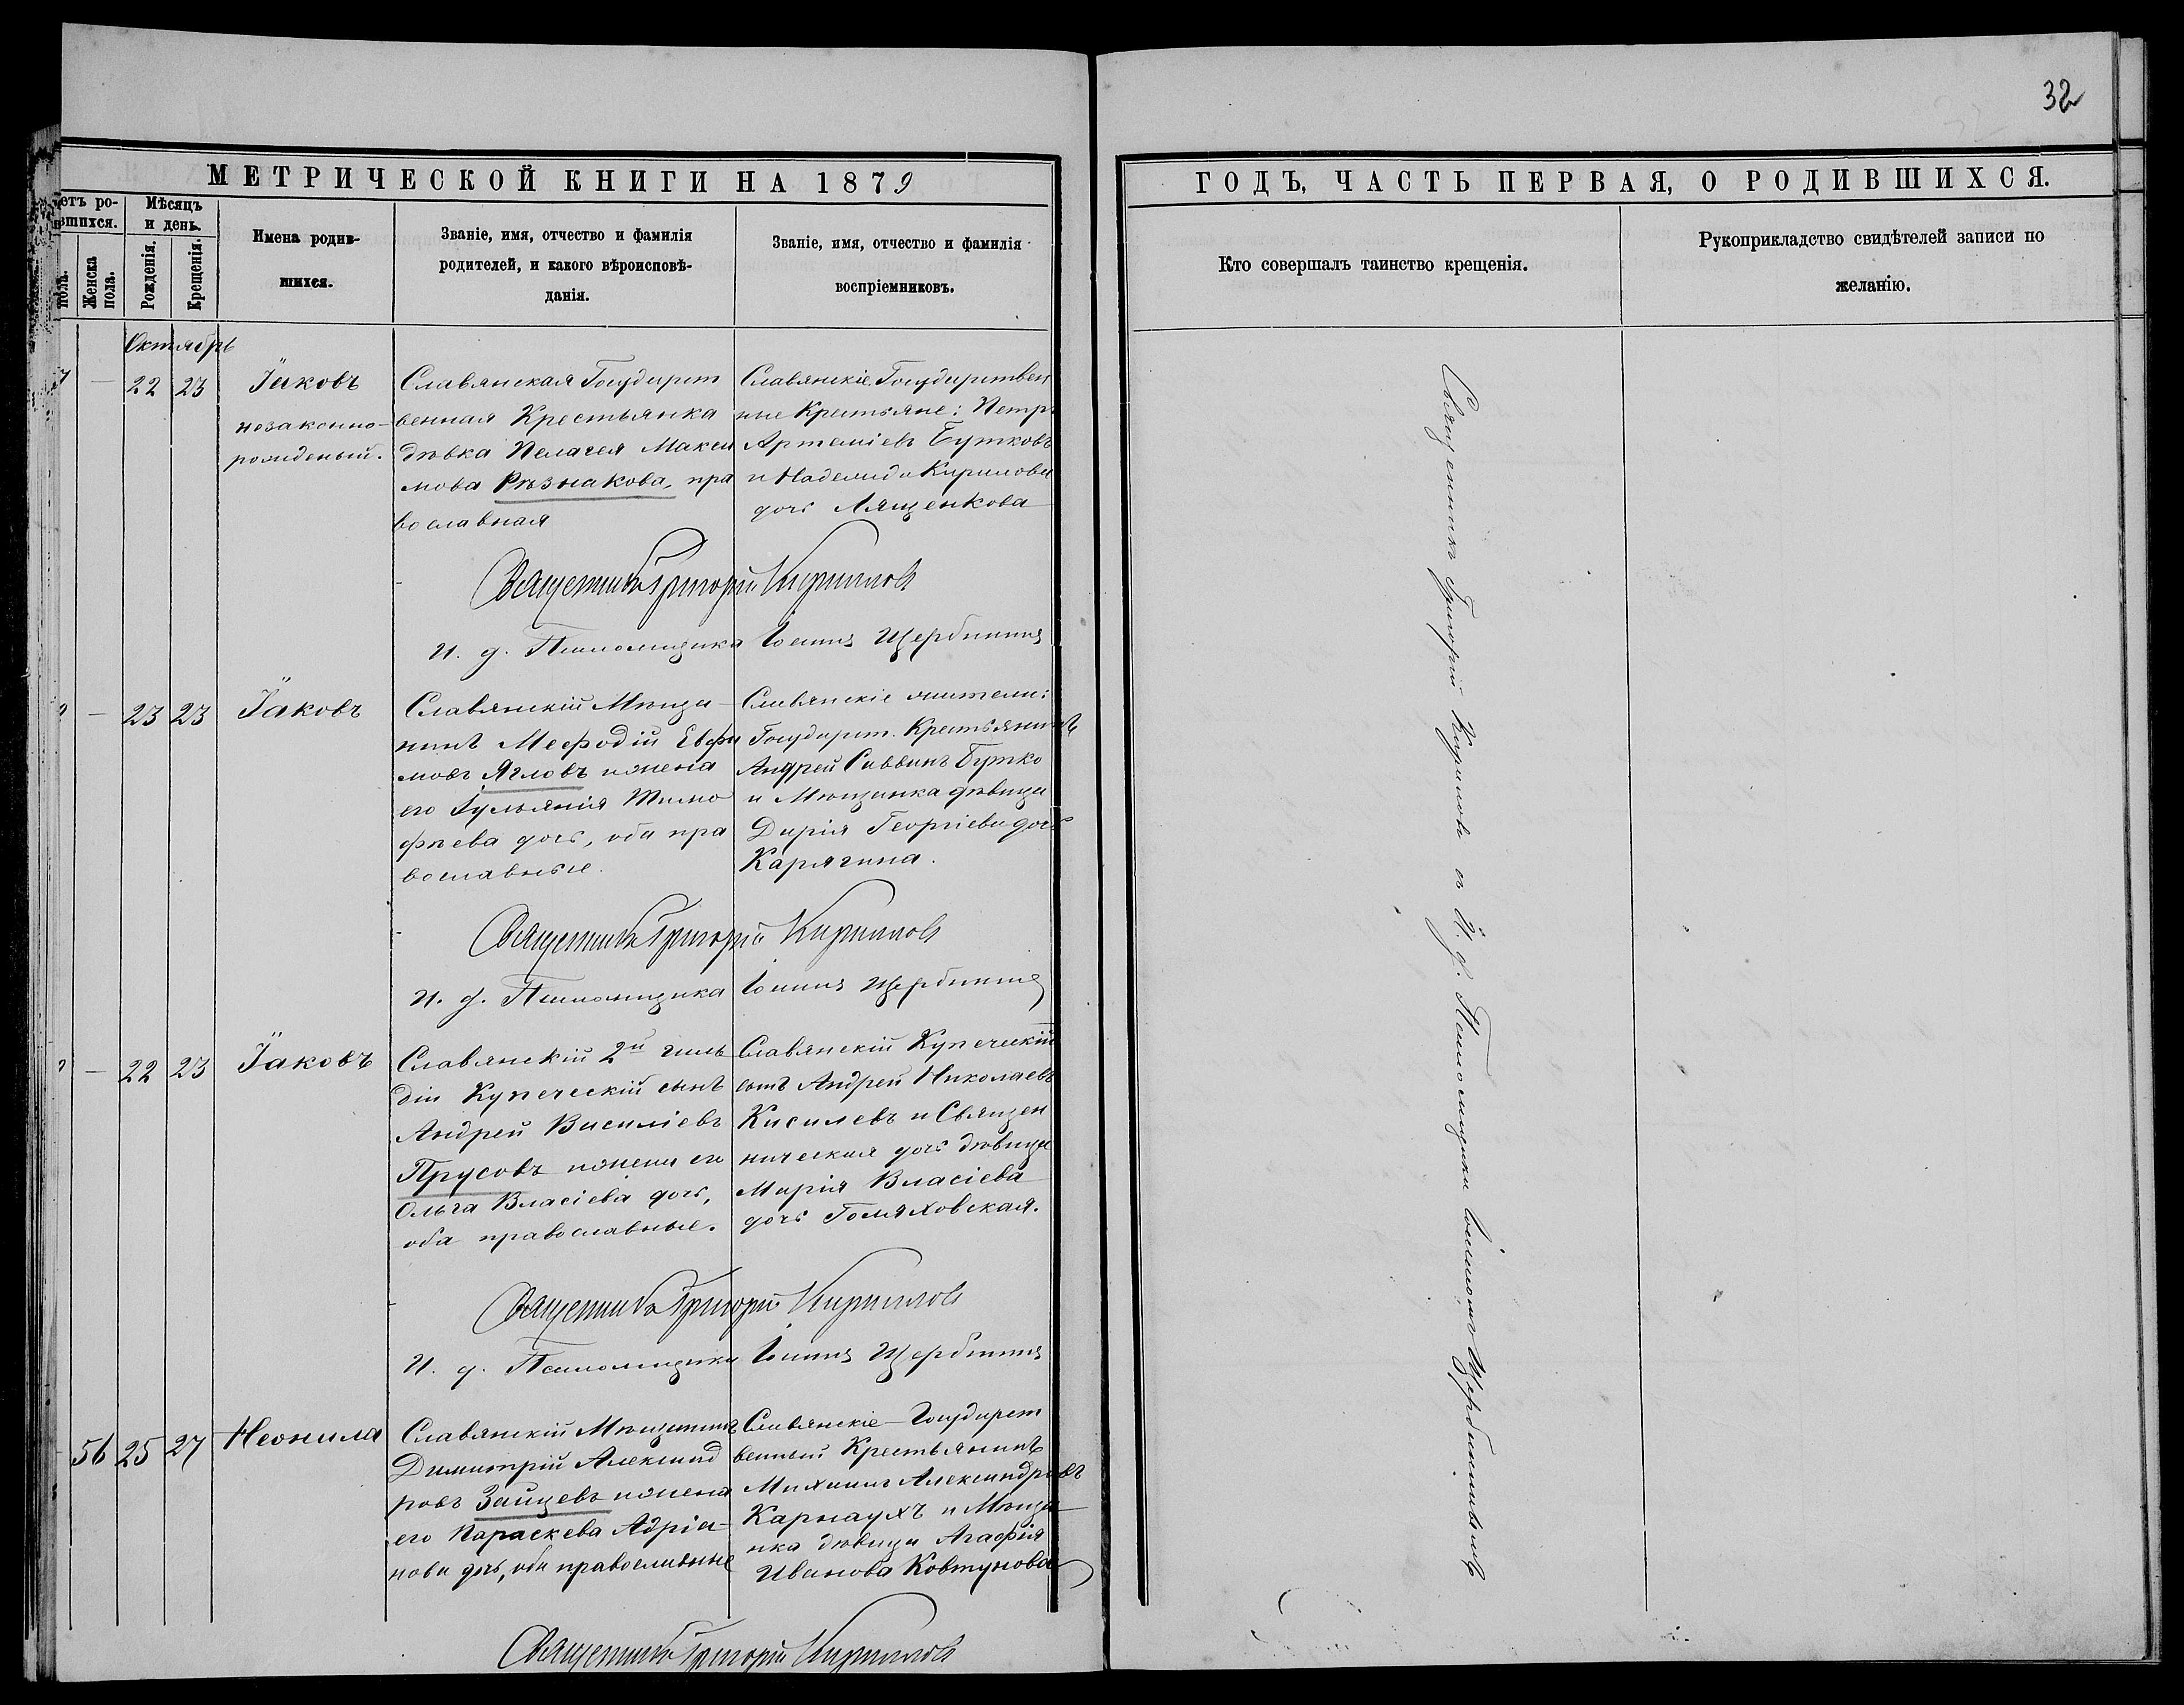 32
МЕТРИЧЕСКОЙ КНИГИ НА 1879
ГОДЪ, ЧАСТЬ ПЕРВАЯ, О РОДИВШИХСЯ.
етъ ро-
вшихся.
пола.
Женска
пола.
Мѣсяцъ
и день.
Рожденія.
Крещенія.
Имена родив-
шихся.
Званіе, имя, отчество и фамилія
родителей, и какого вѣроисповѣ-
данія.
Званіе, имя, отчество и фамилія
воспріемниковъ.
Кто совершалъ таинство крещенія.
Рукоприкладство свидѣтелей записи по
желанію.
Октябрь
— 22 23
Іаковъ
незаконно-
рожденый.
Славянская Государст
венная Крестьянка
дѣвка Пелагея Макси
мова Рѣзнакова, пра
вославная
Славянскіе Государствен
ные Крестьяне: Петръ
Артеміевъ Бутковъ
и Надежда Кирилова
дочь Лященкова
Священникъ Григорій Кириловъ
И. д. Псаломщика Іоаннъ Щербининъ
— 23 23
Іаковъ
Славянскій Мѣща-
нинъ Меѳодій Евфи
мовъ Ягловъ и жена
его Іульянія Тимо
фѣева дочь, оба пра
вославные.
Славянскіе жители:
Государст. Крестьянинъ
Андрей Саввинъ Бутко
и Мѣщанка дѣвица
Дарія Георгіева дочь
Карягина.
Священникъ Григорій Кириловъ
И. д. Псаломщика Іоаннъ Щербининъ
— 22 23
Іаковъ
Славянскій 2й гиль
діи Купеческій сынъ
Андрей Василіевъ
Прусовъ и жена его
Ольга Власіева дочь,
оба православные.
Славянскій Купеческій
сынъ Андрей Николаевъ
Кисилевъ и Священ
ническая дочь дѣвица
Марія Власіева
дочь Гомяховская.
Священникъ Григорій Кириловъ
И. д. Псаломщика Іоаннъ Щербининъ
56 25 27
Неонила
Славянскій Мѣщанинъ
Димитрій Александ
ровъ Зайцевъ и жена
его Параскева Адріа-
нова дочь, оба православные
Славянскіе – Государст
венный Крестьянинъ
Михаилъ Александровъ
Карнаухъ и Мѣща-
нка дѣвица Агафія
Иванова Ковтунова
Священникъ Григорій Кириловъ
Священникъ Григорій Кириловъ съ И. д. Псаломщика Іоанномъ Щербининымъ